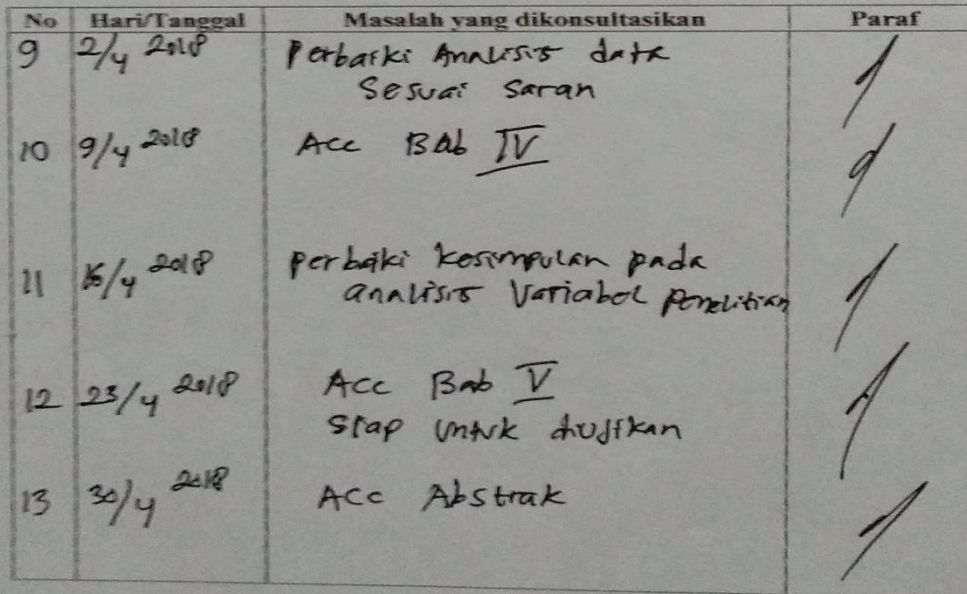 No Hari/Tanggal Masalah yang dikonsultasikan Paraf
9 2/4 2018 Perbaiki Analisis data
Sesuai Saran
10 9/4 2018 Acc Bab IV
11 16/4 2018 Perbaiki kesimpulan pada
analisis Variabel Penelitian
12 23/4 2018 Acc Bab V
Siap untuk diujikan
13 30/4 2018 Acc Abstrak